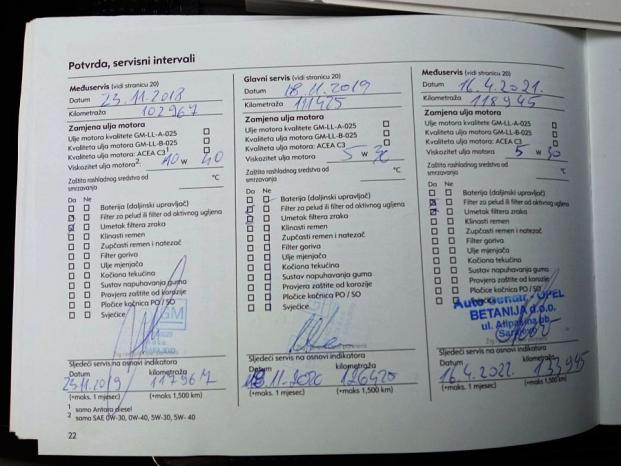 Potvrda, servisni intervali
Međuservis (vidi stranicu 20)
Datum 23.11.2018
Kilometraža 102967
Zamjena ulja motora
Ulje motora kvalitete GM-LL-A-025
Kvaliteta ulja motora GM-LL-B-025
Kvaliteta ulja motora: ACEA C3¹
Viskozitet ulja motora²: 10 w 40
Zaštita rashladnog sredstva od smrzavanja °C
Da Ne
Baterija (daljinski upravljač)
Filter za pelud ili filter od aktivnog ugljena
Umetak filtera zraka
Klinasti remen
Zupčasti remen i natezač
Filter goriva
Ulje mjenjača
Kočiona tekućina
Sustav napuhavanja guma
Provjera zaštite od korozije
Pločice kočnica PO / SO
Svjećice
GM
Sljedeći servis na osnovi indikatora
Datum kilometraža
23.11.2019 117967
(+maks. 1 mjesec) (+maks 1,500 km)
Glavni servis (vidi stranicu 20)
Datum 18.11.2019
Kilometraža 111425
Zamjena ulja motora
Ulje motora kvalitete GM-LL-A-025
Kvaliteta ulja motora GM-LL-B-025
Kvaliteta ulja motora: ACEA C3
Viskozitet ulja motora 5 w 30
Zaštita rashladnog sredstva od smrzavanja °C
Da Ne
Baterija (daljinski upravljač)
Filter za pelud ili filter od aktivnog ugljena
Umetak filtera zraka
Klinasti remen
Zupčasti remen i natezač
Filter goriva
Ulje mjenjača
Kočiona tekućina
Sustav napuhavanja guma
Provjera zaštite od korozije
Pločice kočnica PO / SO
Svjećice
Sljedeći servis na osnovi indikatora
Datum kilometraža
18.11.2020 126420
(+maks. 1 mjesec) (+maks 1,500 km)
Međuservis (vidi stranicu 20)
Datum 16.4.2021.
Kilometraža 118945
Zamjena ulja motora
Ulje motora kvalitete GM-LL-A-025
Kvaliteta ulja motora GM-LL-B-025
Kvaliteta ulja motora: ACEA C3
Viskozitet ulja motora 5 w 30
Zaštita rashladnog sredstva od smrzavanja °C
Da Ne
Baterija (daljinski upravljač)
Filter za pelud ili filter od aktivnog ugljena
Umetak filtera zraka
Klinasti remen
Zupčasti remen i natezač
Filter goriva
Ulje mjenjača
Kočiona tekućina
Sustav napuhavanja guma
Provjera zaštite od korozije
Pločice kočnica PO / SO
Auto centar - OPEL
BETANIJA d.o.o.
Sljedeći servis na osnovi indikatora
Datum kilometraža
16.4.2022. 133945
(+maks. 1 mjesec) (+maks 1,500 km)
¹ samo Antara diesel
² samo SAE 0W-30, 0W-40, 5W-30, 5W- 40
22